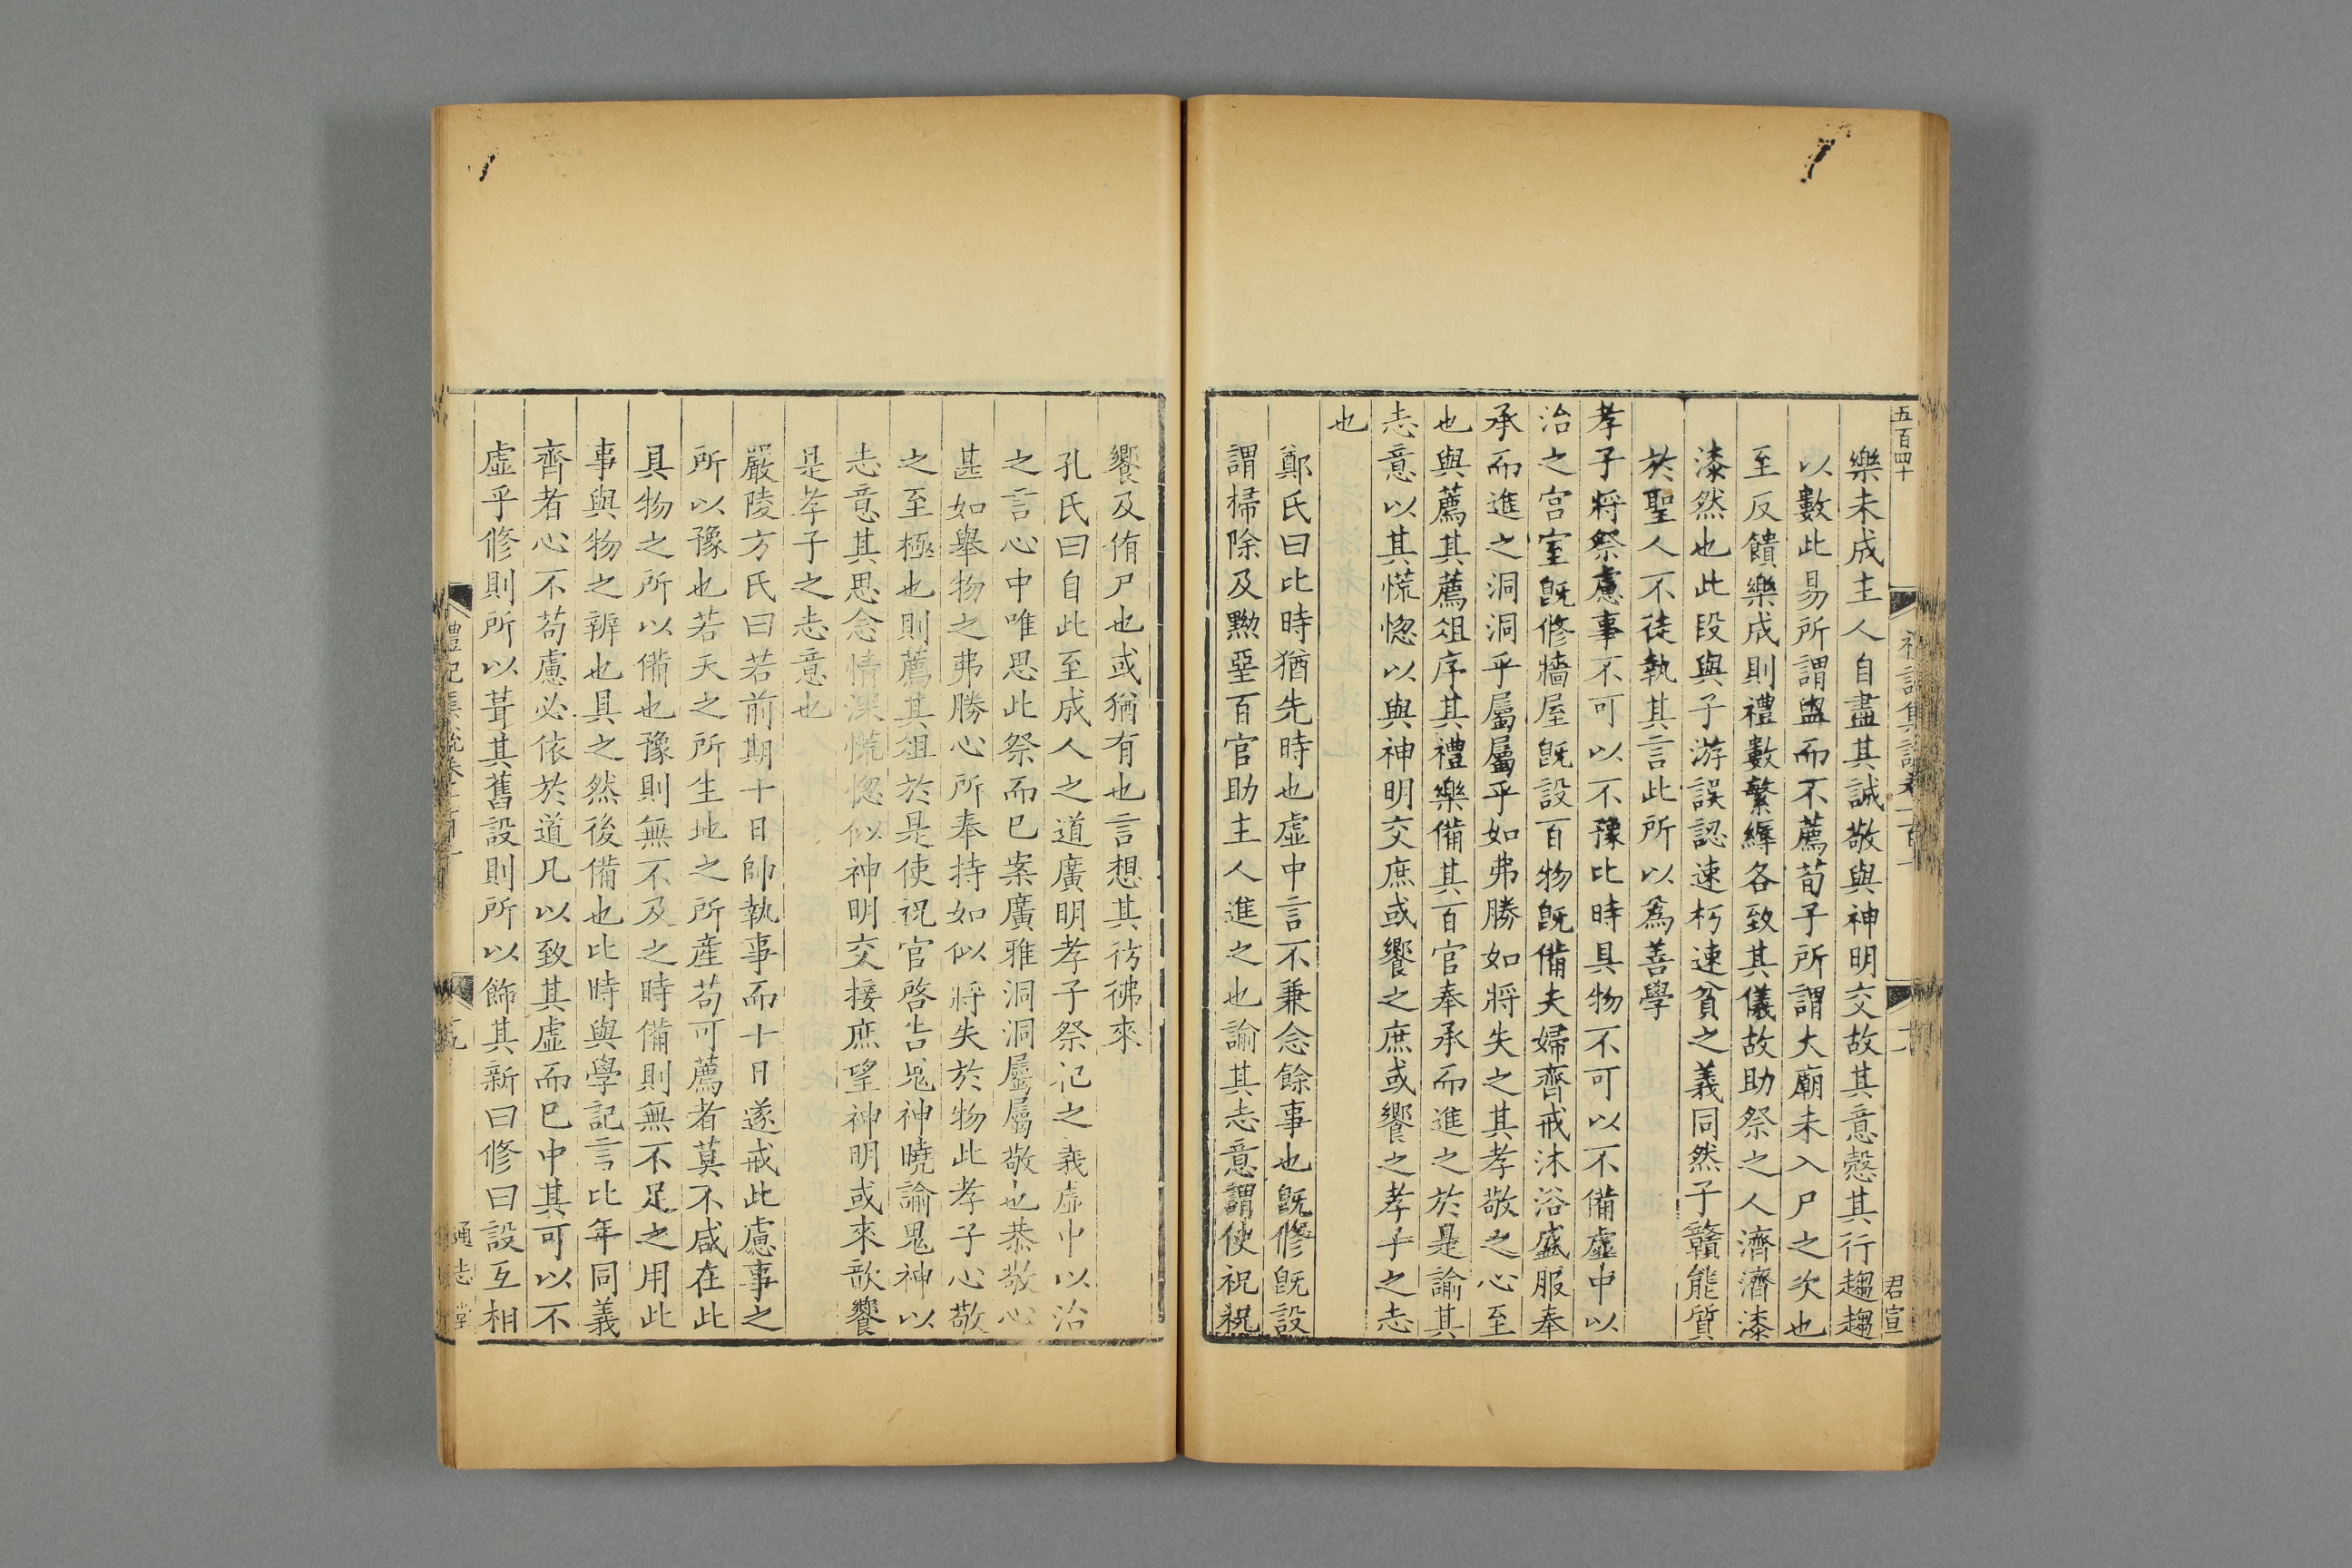 五百四十
禮記集說卷一百十
君宣
樂未成主人自盡其誠敬與神明交故其意愨其行趨趨
以數此易所謂盥而不薦荀子所謂大廟未入尸之次也
至反饋樂成則禮數繁縟各致其儀故助祭之人濟濟漆
漆然也此段與子游誤認速朽速貧之義同然子贛能質
於聖人不徒執其言此所以爲善學
孝子將祭慮事不可以不豫比時具物不可以不備虛中以
治之宮室旣修牆屋旣設百物旣備夫婦齊戒沐浴盛服奉
承而進之洞洞乎屬屬乎如弗勝如將失之其孝敬之心至
也與薦其薦俎序其禮樂備其百官奉承而進之於是諭其
志意以其慌惚以與神明交庶或饗之庶或饗之孝子之志
也
鄭氏曰比時猶先時也虛中言不兼念餘事也旣修旣設
謂掃除及黝堊百官助主人進之也諭其志意謂使祝祝
饗及侑尸也或猶有也言想其彷彿來
孔氏曰自此至成人之道廣明孝子祭祀之義虛中以治
之言心中唯思此祭而已案廣雅洞洞屬屬敬也恭敬心
甚如舉物之弗勝心所奉持如似將失於物此孝子心敬
之至極也則薦其俎於是使祝官啓告鬼神曉諭鬼神以
志意其思念情深慌惚似神明交接庶望神明或來歆饗
是孝子之志意也
嚴陵方氏曰若前期十日帥執事而十日遂戒此慮事之
所以豫也若天之所生地之所產苟可薦者莫不咸在此
具物之所以備也豫則無不及之時備則無不足之用此
事與物之辨也具之然後備也比時與學記言比年同義
齊者心不苟慮必依於道凡以致其虛而已中其可以不
虛乎修則所以葺其舊設則所以飾其新曰修曰設互相
禮記集說卷一百十
通志堂